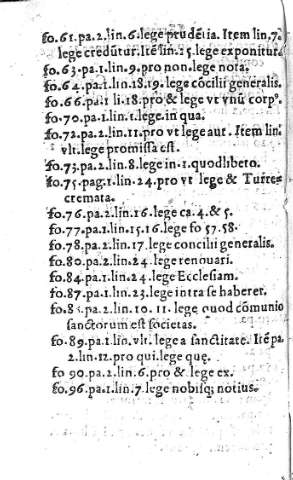 fo.61.pa.2.lin.6.lege prudẽtia. Item lin.7.
lege credũtur. Itẽ lin.25.lege exponitur.
fo.63.pa.1.lin.9.pro non.lege nota.
fo.64.pa.1.lin.18.19.lege cõcilii generalis.
fo.66.pa.1 li.18.pro & lege vt vnũ corpꝰ.
fo.70.pa.1.lin.1.lege.in qua.
fo.72.pa.2.lin.11.pro vt lege aut. Item lin.
vlt.lege promissa est.
fo.73.pa.2.lin.8.lege in.1.quodlibeto.
fo.75.pag.1.lin.24.pro vt lege & Turre-
cremata.
fo.76.pa.2.lin.16.lege ca.4.& 5.
fo.77.pa.1.lin.15.16.lege fo 57.58.
fo.78.pa.2.lin.17.lege concilii generalis.
fo.80.pa.2.lin.24.lege renouari.
fo.84.pa.1.lin.24.lege Ecclesiam.
fo.87.pa.1.lin.23.lege intra se haberet.
pa.2.lin.10.11.lege quod cõmunio
sanctorum est societas.
fo.89.pa.1.lin.vlt.lege a sanctitate. Itẽ pa
2.lin.12.pro qui.lege quę.
fo 90.pa.2.lin.6.pro & lege ex.
fo.96.pa.1.lin.7.lege nobisq; notius.